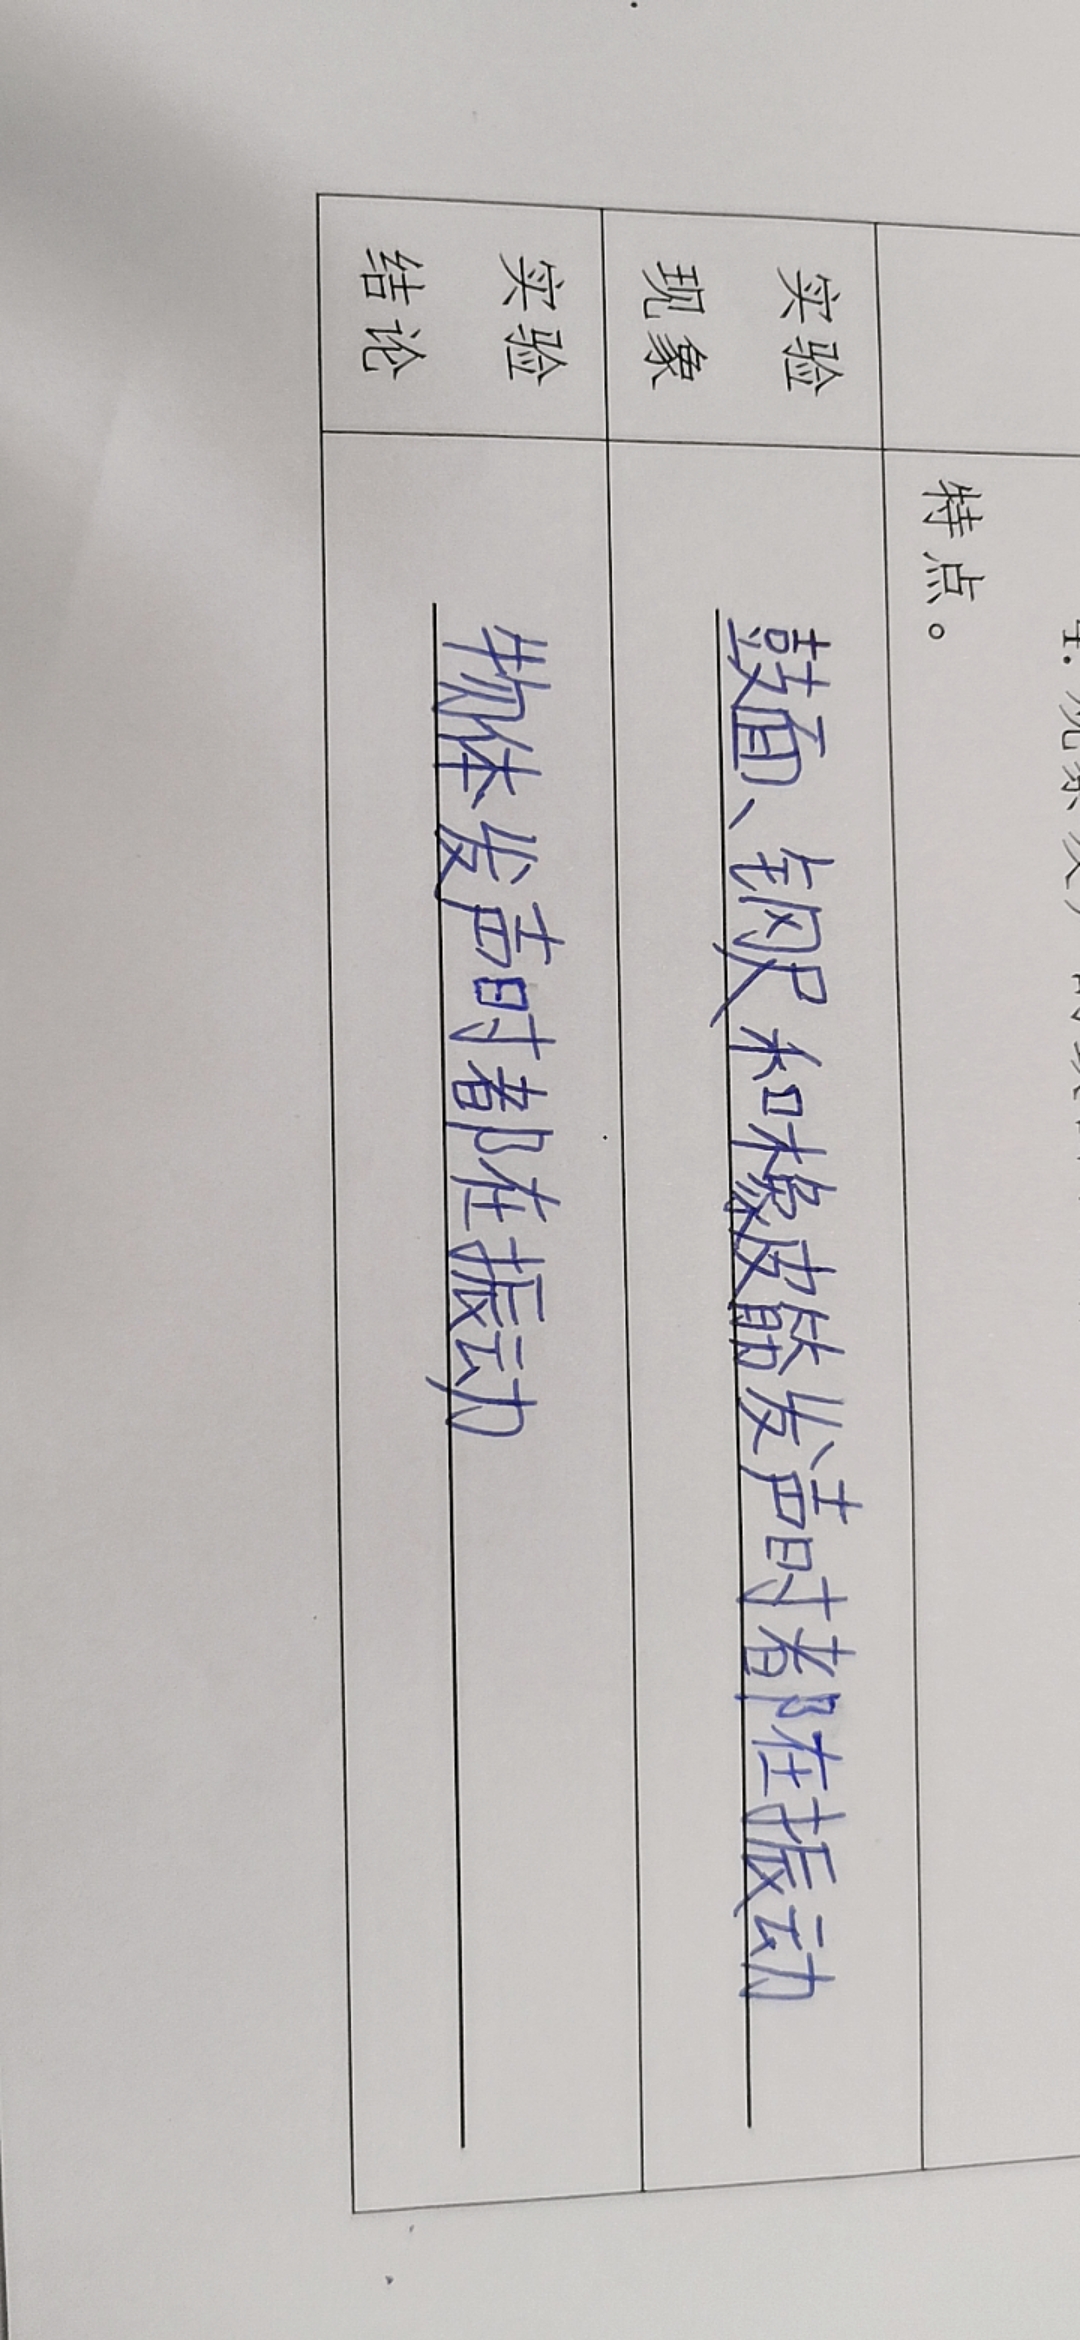 特点。
实验
现象
鼓面、钢尺和橡皮筋发声时都在振动
实验
结论
物体发声时都在振动